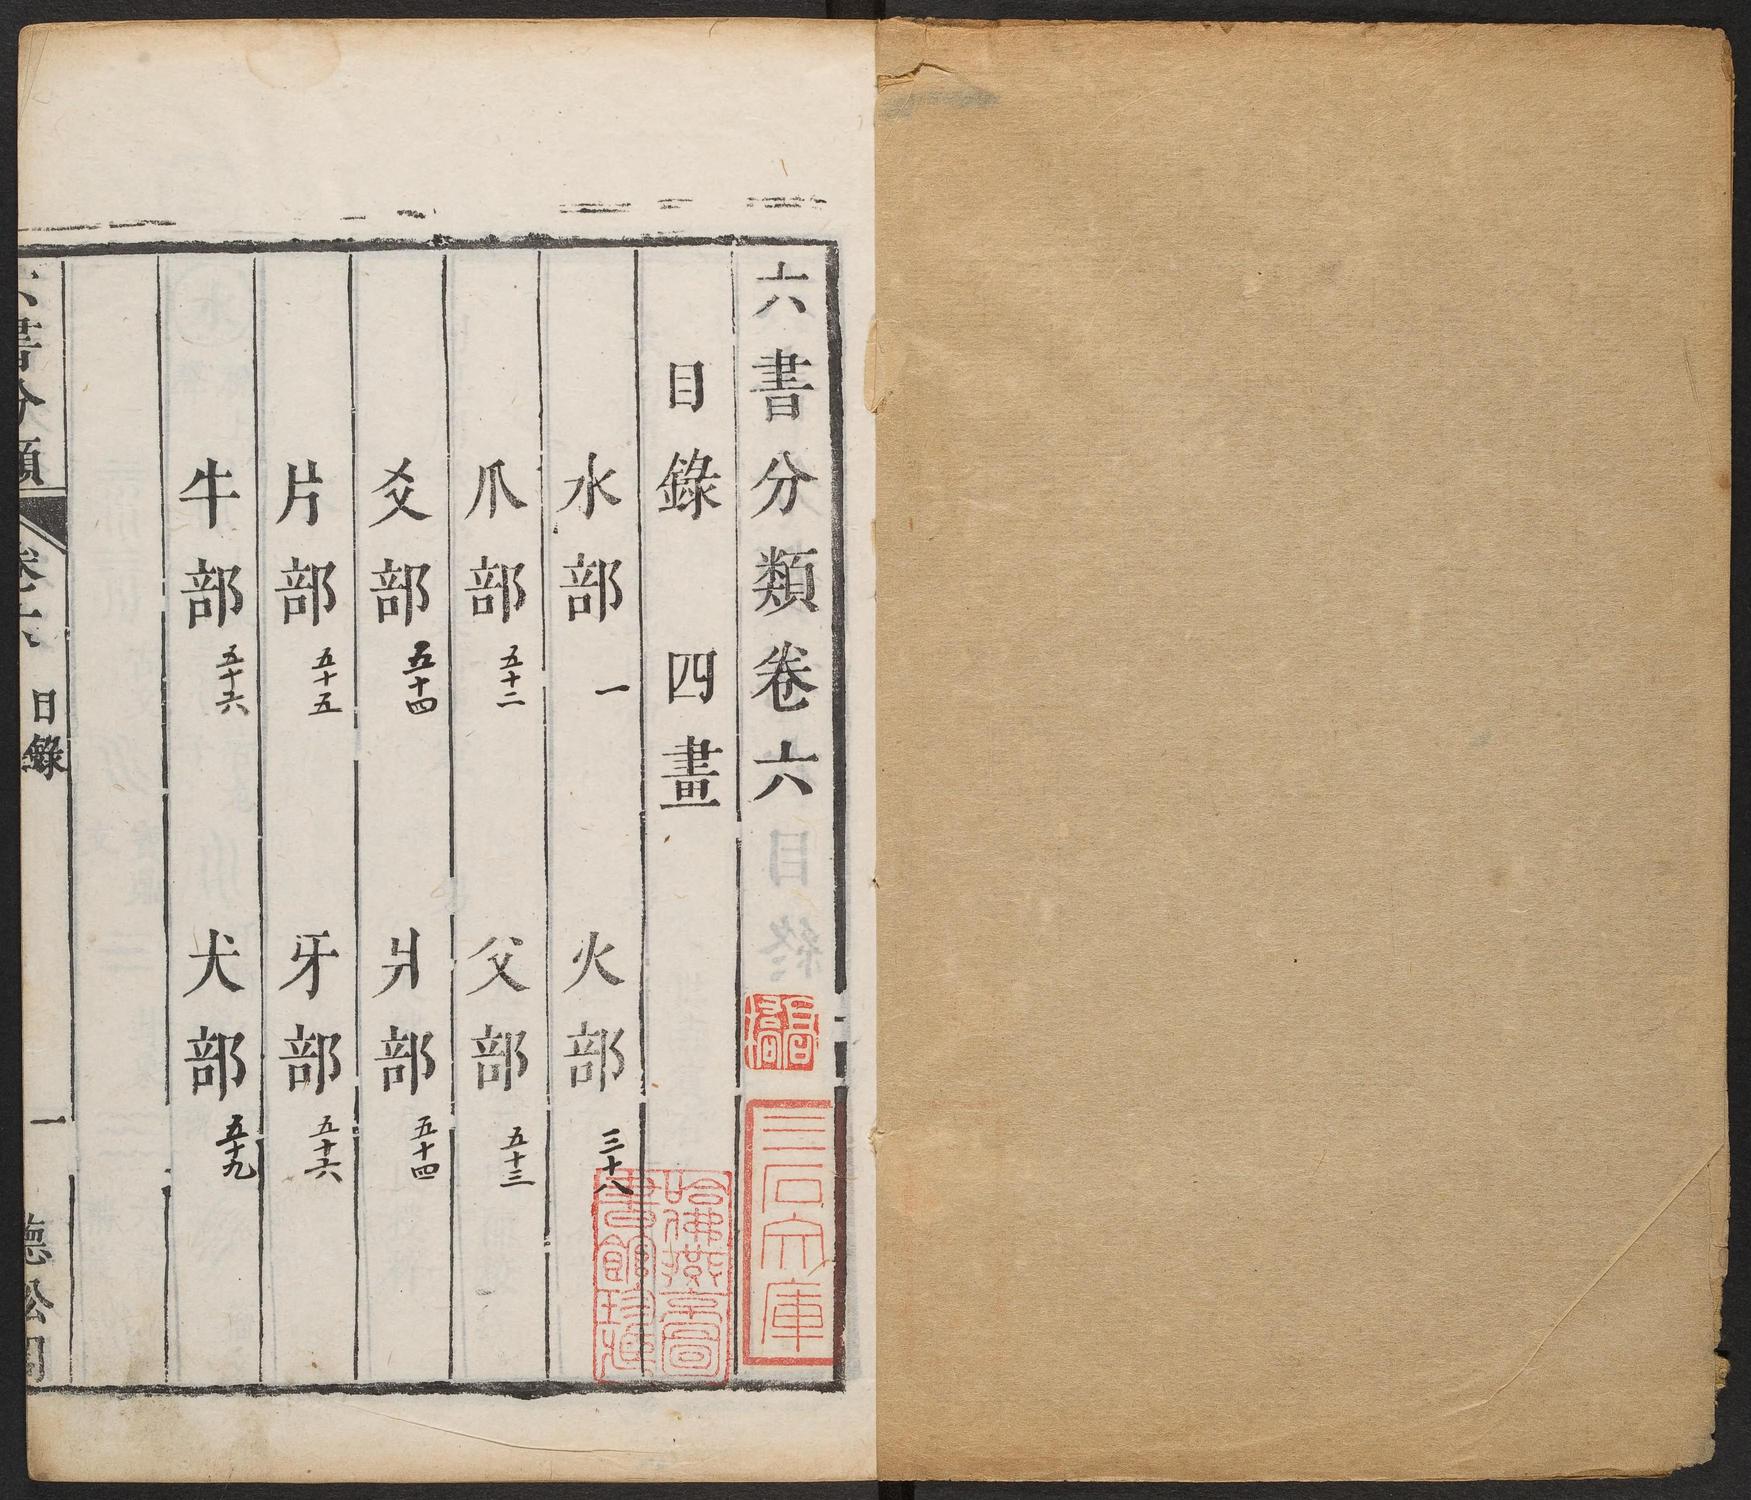 六書分類卷六
三石文庫
目錄 四畫
哈佛燕京圖書館珍藏
水部 一 火部 三十八
爪部 五十二 父部 五十三
爻部 五十四 爿部 五十四
片部 五十五 牙部 五十六
牛部 五十六 犬部 五十九
六書分類 卷六 目錄 一